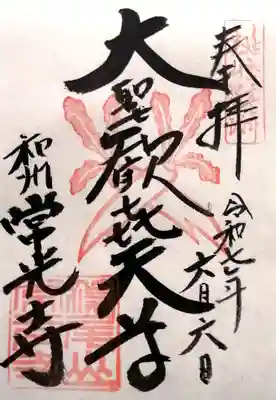 奉拝
令和七年六月六日
大聖歓喜天尊
和州
常光寺